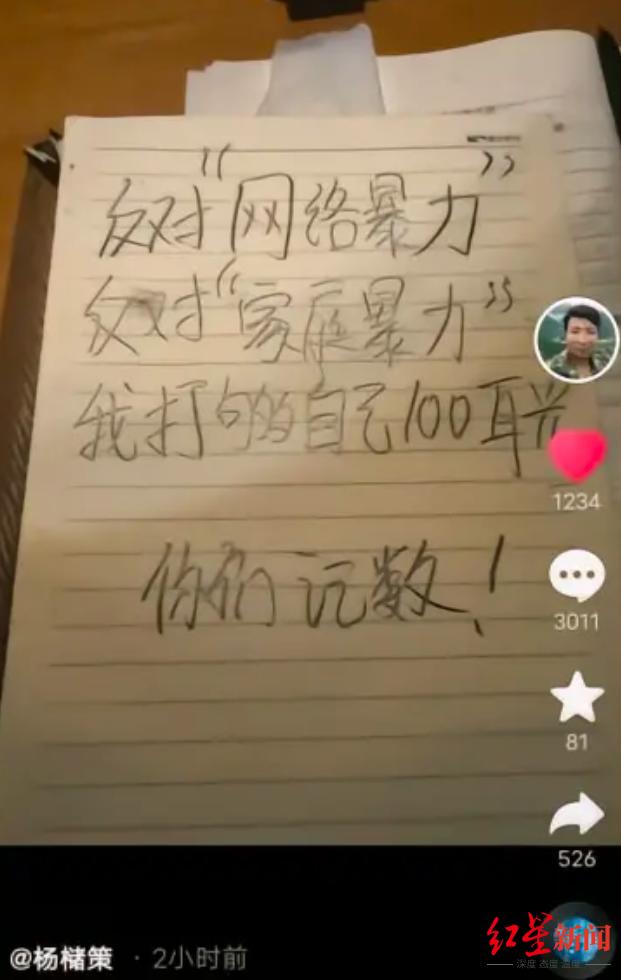 反对“网络暴力”
反对“家庭暴力”
我打够自己100耳光
你们记数！
1234
3011
81
526
@杨槠策 · 2小时前
红星新闻
深度 态度 温度